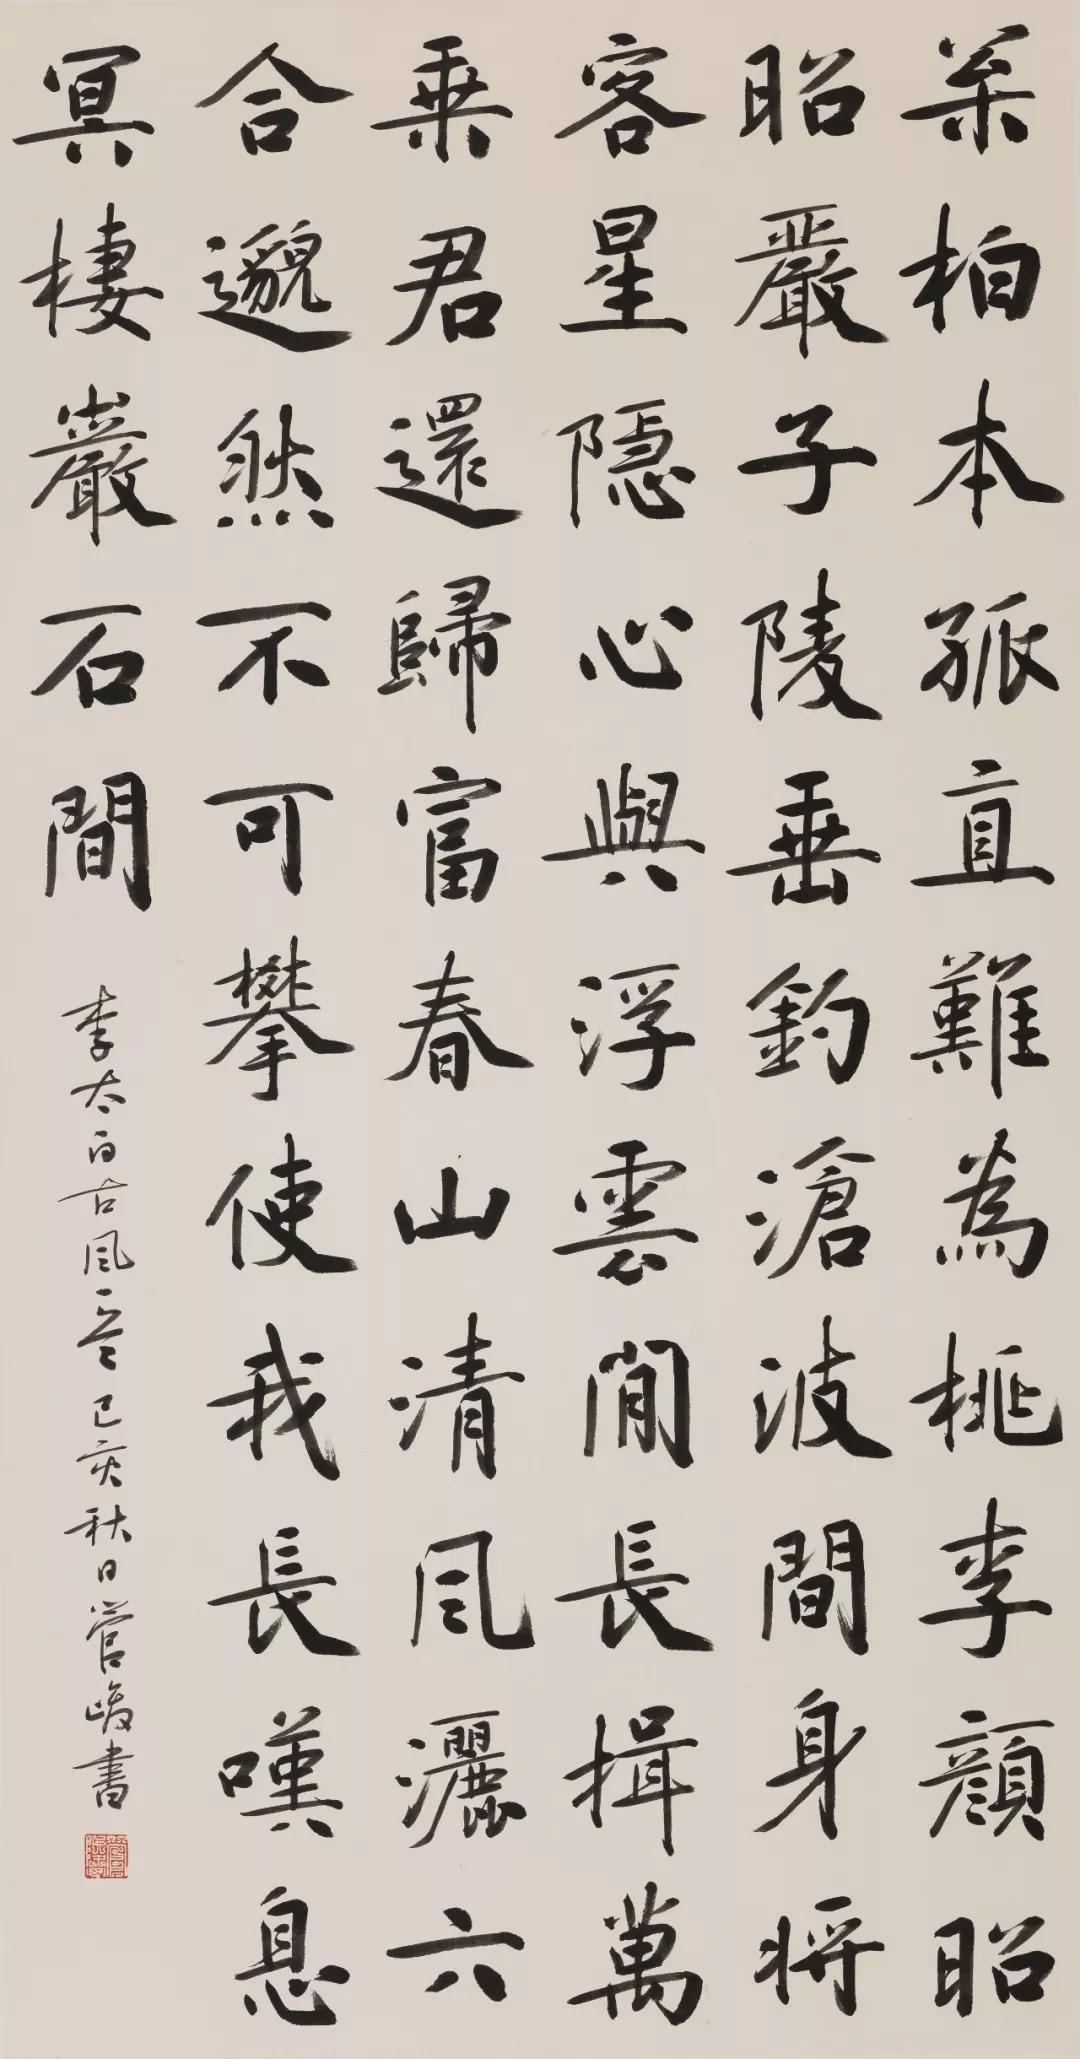 枀柏本孤直難為桃李顏昭
昭嚴子陵垂釣滄波間身將
客星隱心與浮雲閒長揖萬
乘君還歸富春山清風灑六
合邈然不可攀使我長嘆息
冥棲巖石間
李太白古風一首己亥秋日管峻書